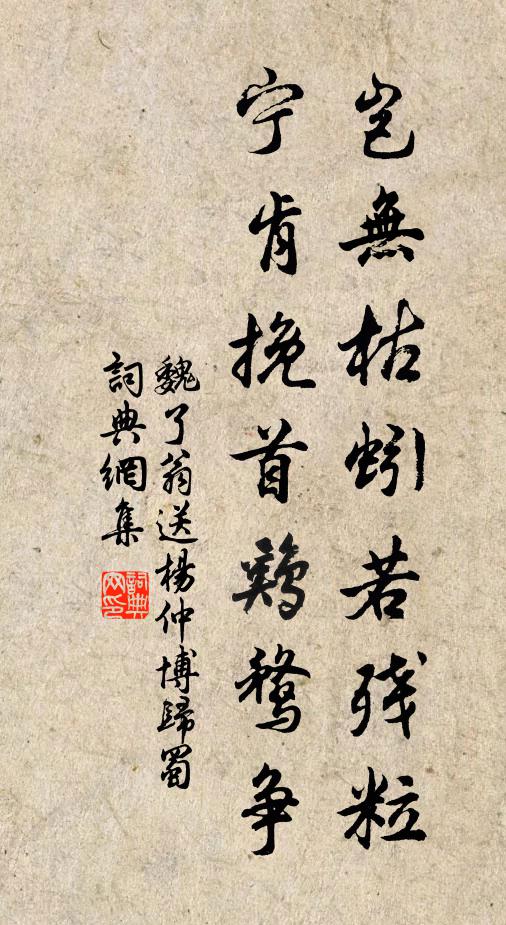 岂無枯蚓若残粒
宁肯挽首鵎鹜争
魏了翁送楊仲博歸蜀
詞典網集
詞典网印